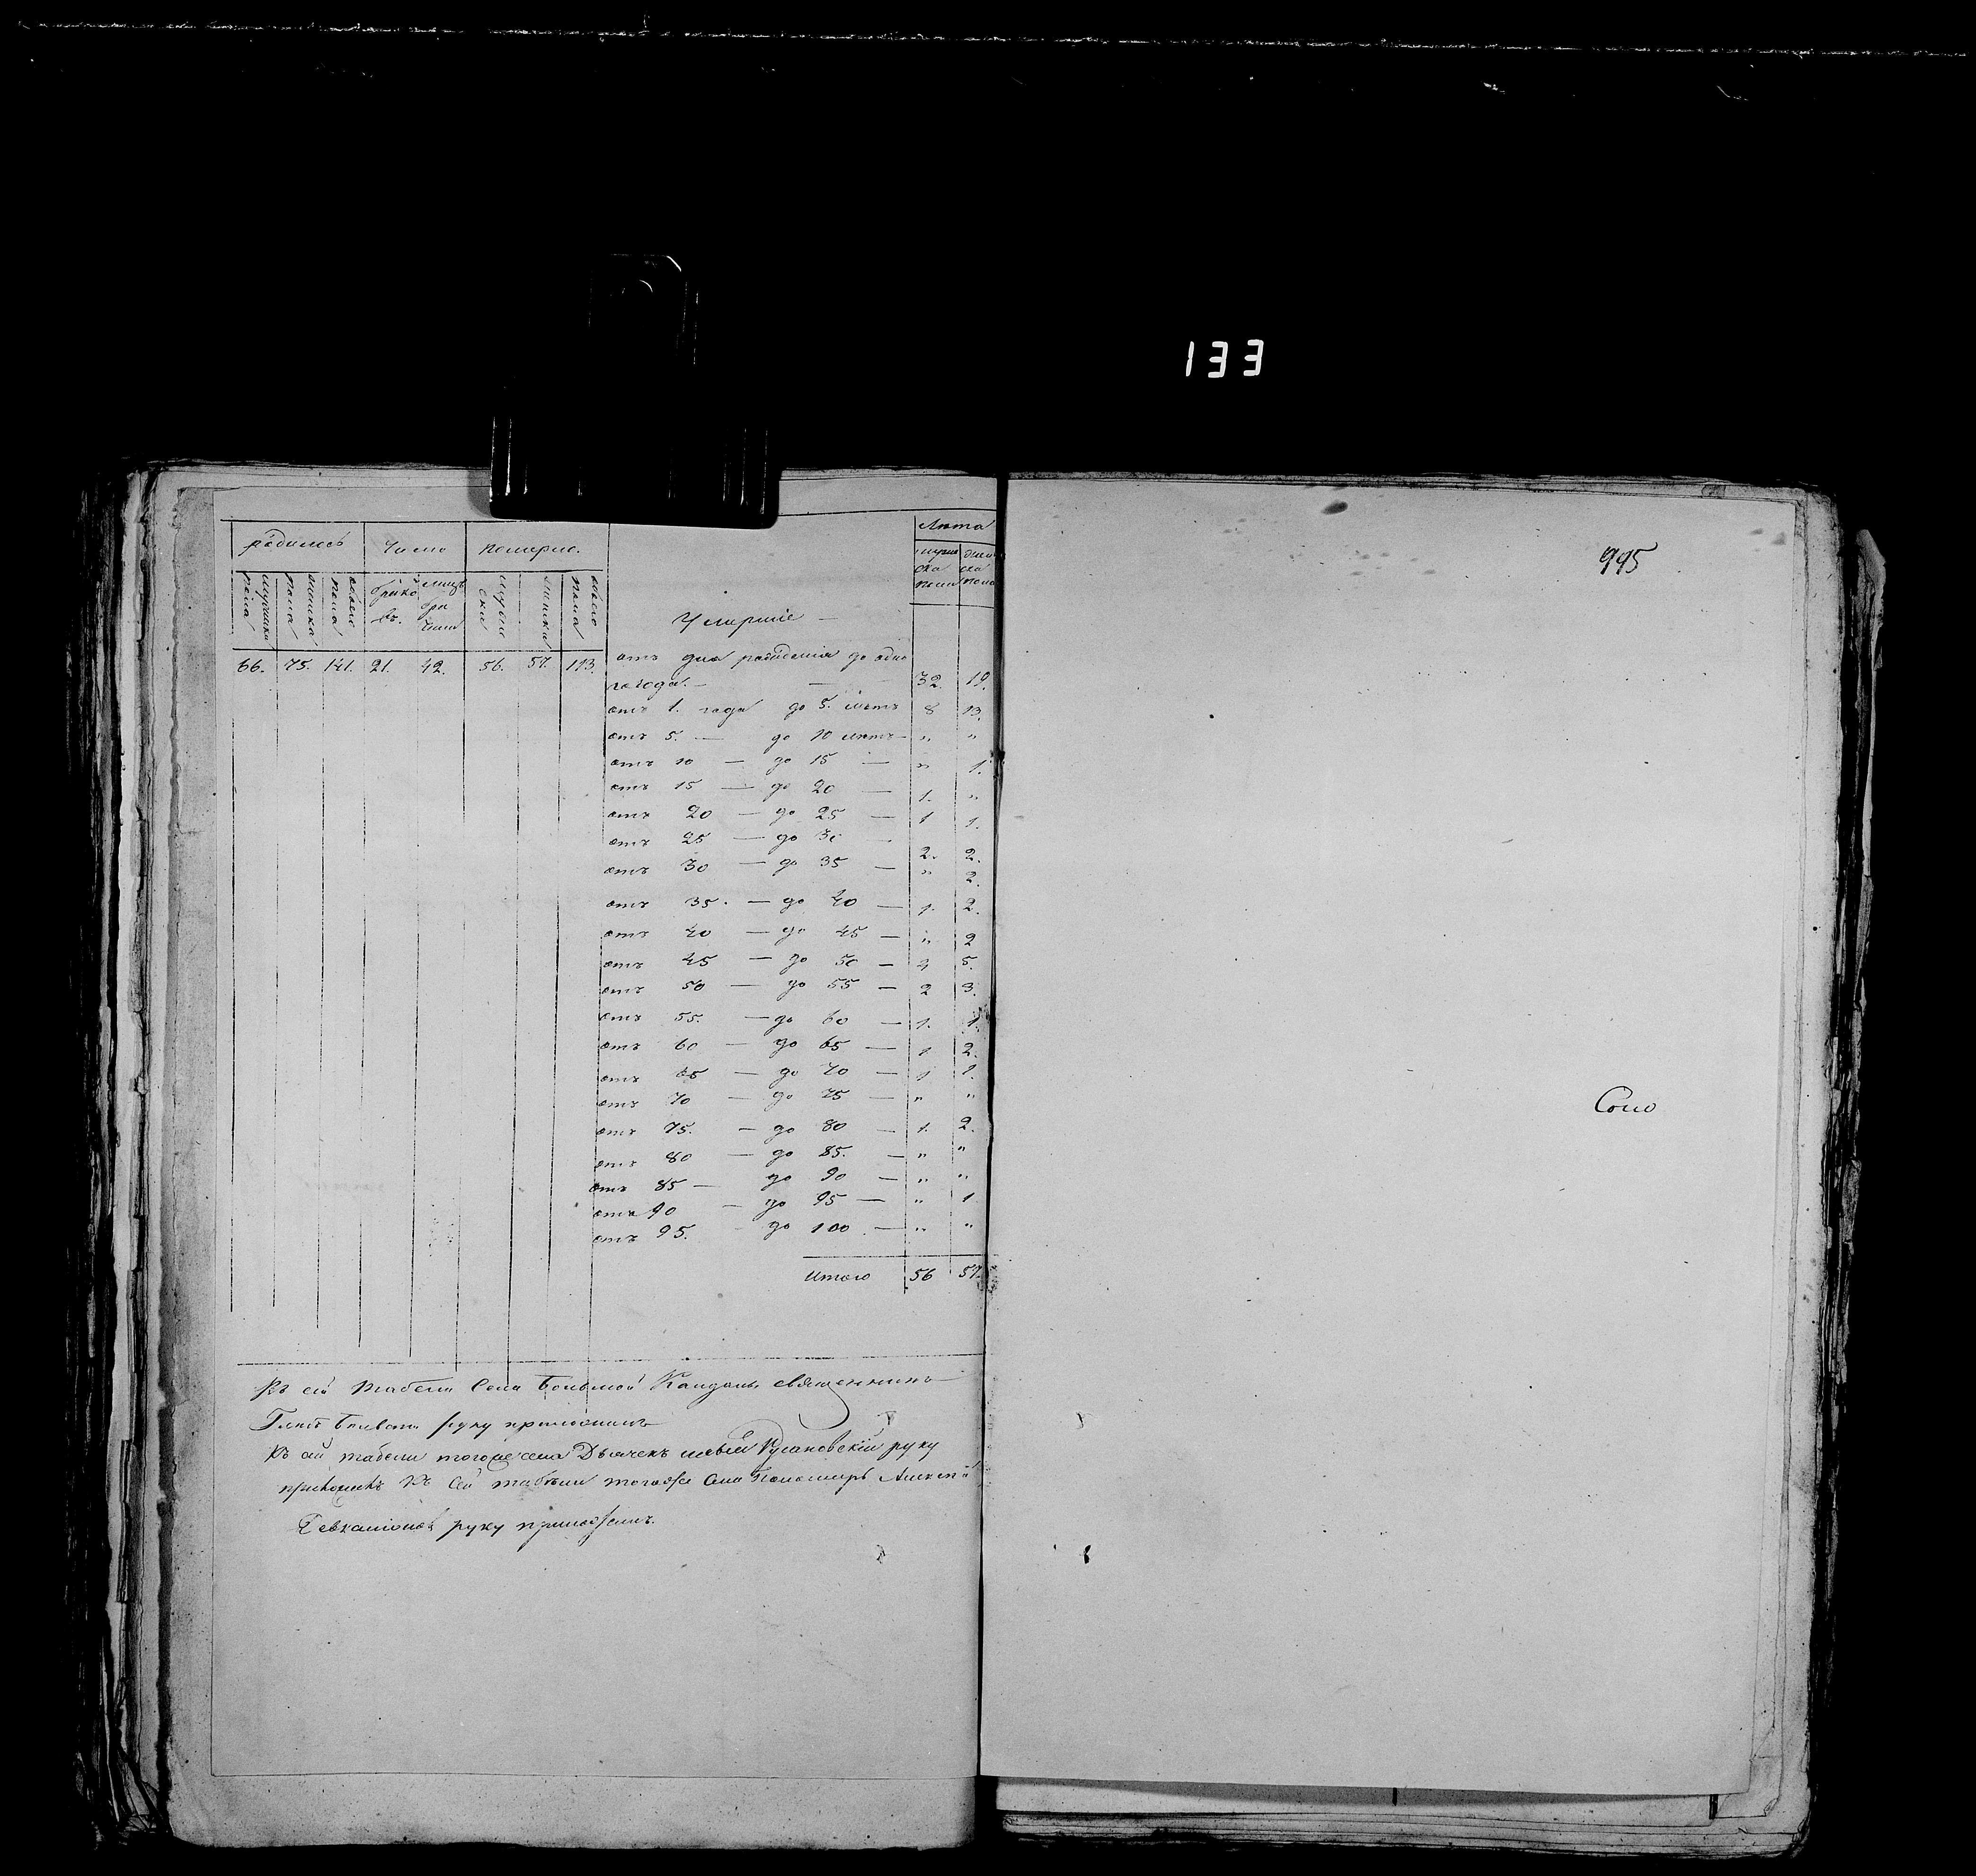 133
родилось Число померло. Лѣта
мужска пола женска пола обоего пола браковъ. лицъ бра чныхъ мужес ски женски обоего пола мужес ска пола женс ска пола
Умершіе —
66. 75. 141. 21. 42. 56. 57. 113.
отъ дня рожденія до одно
го года. — — 32. 19.
отъ 1. года до 5. лѣтъ 8 13.
отъ 5. — до 10 лѣтъ — „ „
отъ 10 — до 15 — „ 1.
отъ 15 — до 20 — 1. „
отъ 20 — до 25 — 1 1.
отъ 25 — до 30 — 2. 2.
отъ 30 — до 35 — „ 2.
отъ 35. — до 40 — 1. 2.
отъ 40 — до 45 — „ 2
отъ 45 — до 50 — 5.
отъ 50 — до 55 — 2 3.
отъ 55. — до 60 — 1. 1.
отъ 60 — до 65 — 1 2.
отъ 65 — до 70 — 1 1.
отъ 70 — до 75 — „ „
отъ 75. — до 80 — 1. 2.
отъ 80 — до 85. — „ „
отъ 85 — до 90 — „ „
отъ 90 — до 95 — „ 1
отъ 95. до 100. — „ „
Итого 56 57.
Къ сей табели Села Большой Кандалы священникъ
руку приложилъ
Къ сей табели тогоже села Дьячекъ руку
приложилъ Къ сей табели тогоже села Пономарь Алексѣй
руку приложилъ.
995